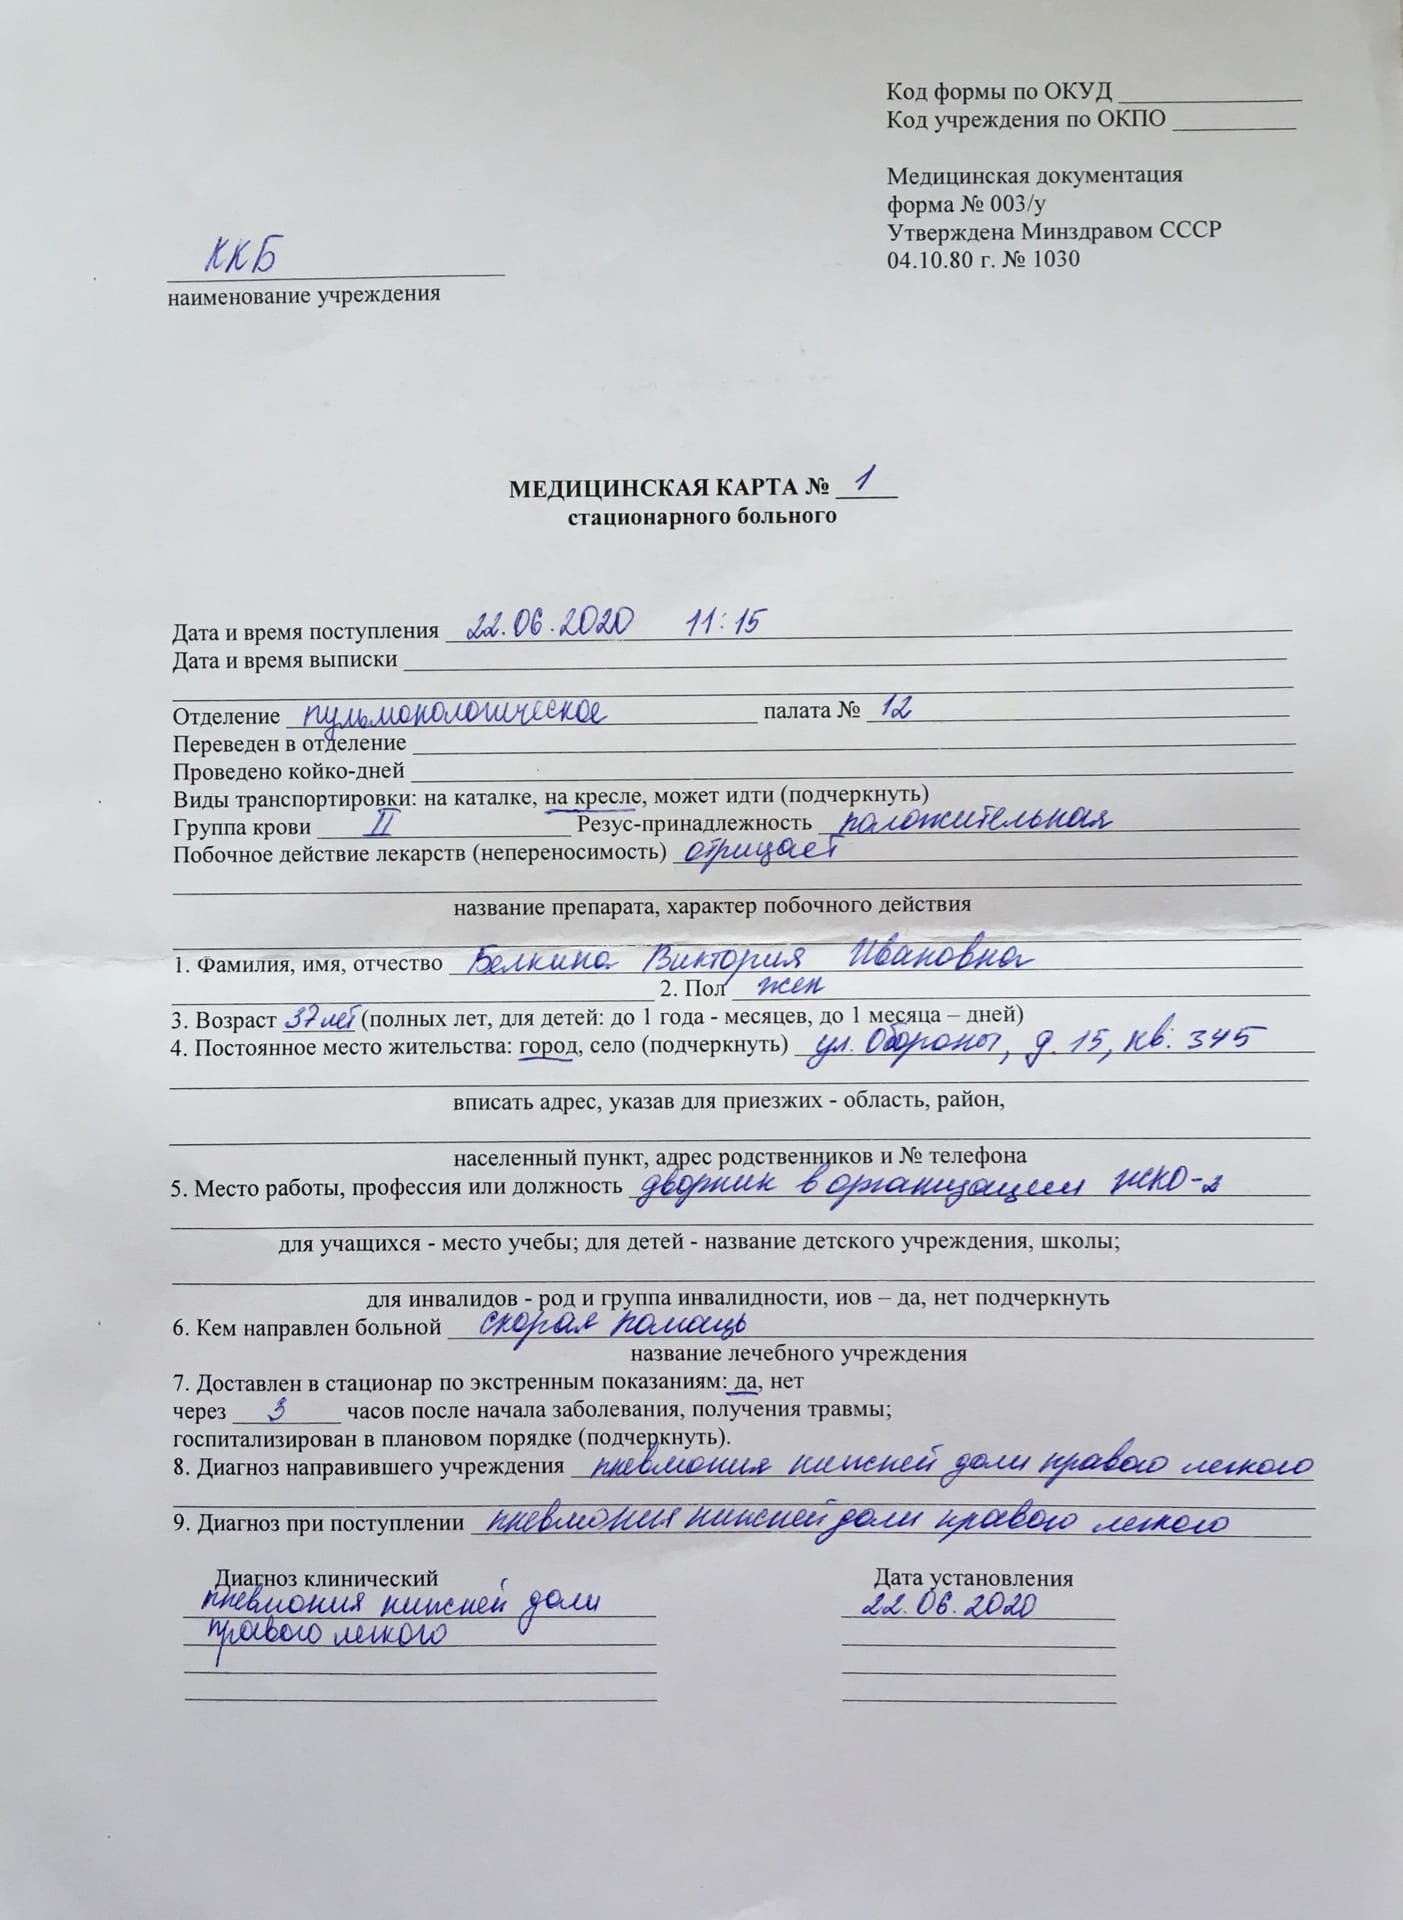 Код формы по ОКУД
Код учреждения по ОКПО
Медицинская документация
форма № 003/у
Утверждена Минздравом СССР
04.10.80 г. № 1030
ККБ
наименование учреждения
МЕДИЦИНСКАЯ КАРТА № 1
стационарного больного
Дата и время поступления 22.06.2020 11:15
Дата и время выписки
Отделение пульмонологическое палата № 12
Переведен в отделение
Проведено койко-дней
Виды транспортировки: на каталке, на кресле, может идти (подчеркнуть)
Группа крови II Резус-принадлежность положительная
Побочное действие лекарств (непереносимость) отрицает
название препарата, характер побочного действия
1. Фамилия, имя, отчество Белкина Виктория Ивановна
2. Пол жен
3. Возраст 37 лет (полных лет, для детей: до 1 года - месяцев, до 1 месяца – дней)
4. Постоянное место жительства: город, село (подчеркнуть) ул. Обороны, д. 15, кв. 345
вписать адрес, указав для приезжих - область, район,
населенный пункт, адрес родственников и № телефона
5. Место работы, профессия или должность дворник в организации ЖКО-2
для учащихся - место учебы; для детей - название детского учреждения, школы;
для инвалидов - род и группа инвалидности, иов – да, нет подчеркнуть
6. Кем направлен больной скорая помощь
название лечебного учреждения
7. Доставлен в стационар по экстренным показаниям: да, нет
через 3 часов после начала заболевания, получения травмы;
госпитализирован в плановом порядке (подчеркнуть).
8. Диагноз направившего учреждения пневмония нижней доли правого легкого
9. Диагноз при поступлении пневмония нижней доли правого легкого
Диагноз клинический Дата установления
пневмония нижней доли 22.06.2020
правого легкого